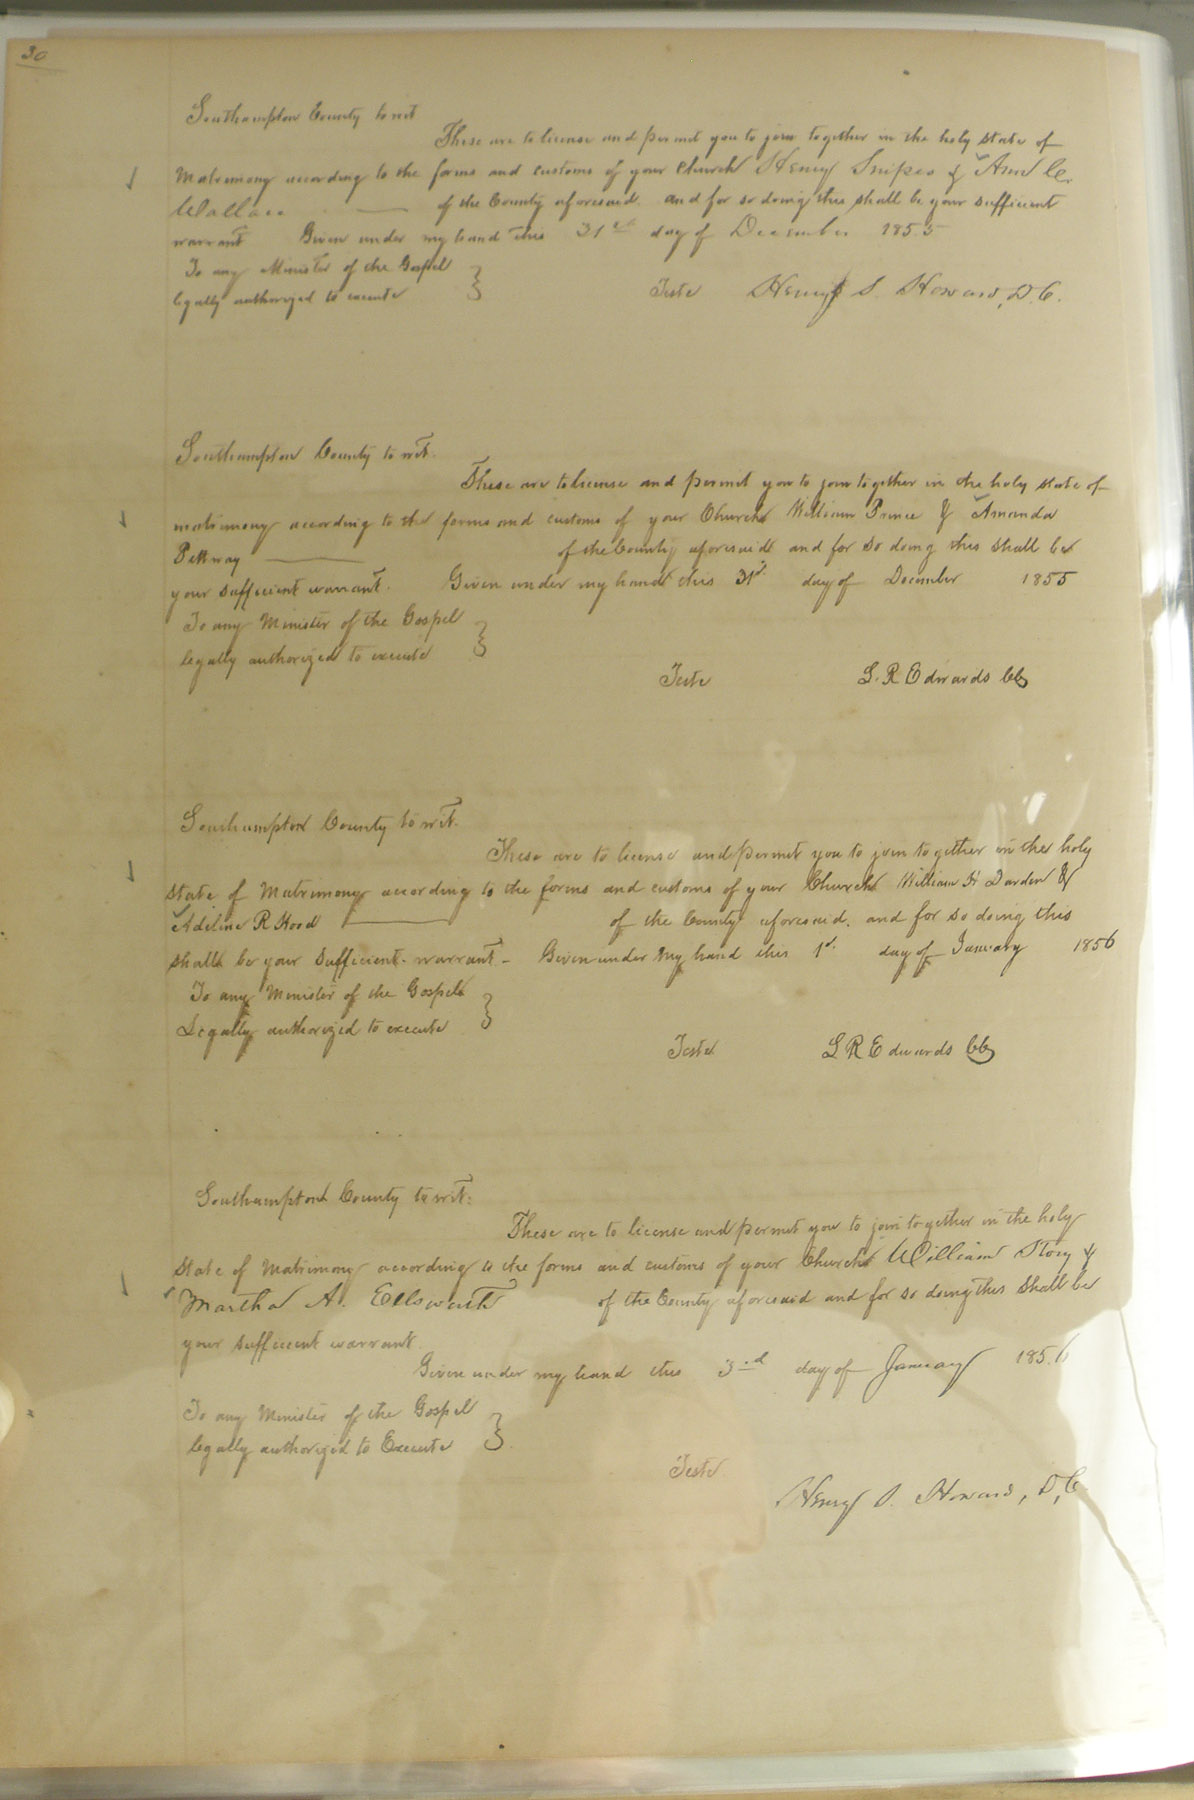 30
Southampton County to wit
These are to license and permit you to join together in the holy state of
Matrimony according to the forms and customs of your Church Henry Snipes & Ann C.
Wallace of the County aforesaid. and for so doing this shall be your sufficient
warrant Given under my hand this 31st day of December 1855
To any Minister of the Gospel
legally authorized to execute
Teste Henry S. Howard, D.C.
Southampton County to wit.
These are to license and permit you to join together in the holy state of
matrimony according to the forms and customs of your Church William Prince & Amanda
Pettway of the County aforesaid and for so doing this shall be
your sufficient warrant. Given under my hand this 31st day of December 1855
To any Minister of the Gospel
legally authorized to execute
Teste L. R Edwards CC
Southampton County to wit.
These are to license and permit you to join together in the holy
state of Matrimony according to the forms and customs of your Church William H Darden &
Adeline R Hood of the County aforesaid. and for so doing this
shall be your sufficient warrant - Given under my hand this 1st day of January 1856
To any Minister of the Gospel
Legally authorized to execute
Teste L R Edwards CC
Southampton County to wit:
These are to license and permit you to join together in the holy
State of Matrimony according to the forms and customs of your Church William Story &
Martha A. Ellsworth of the County aforesaid and for so doing this shall be
your sufficient warrant
Given under my hand this 3rd day of January 1856
To any Minister of the Gospel
legally authorized to Execute
Teste
Henry S. Howard, D,C